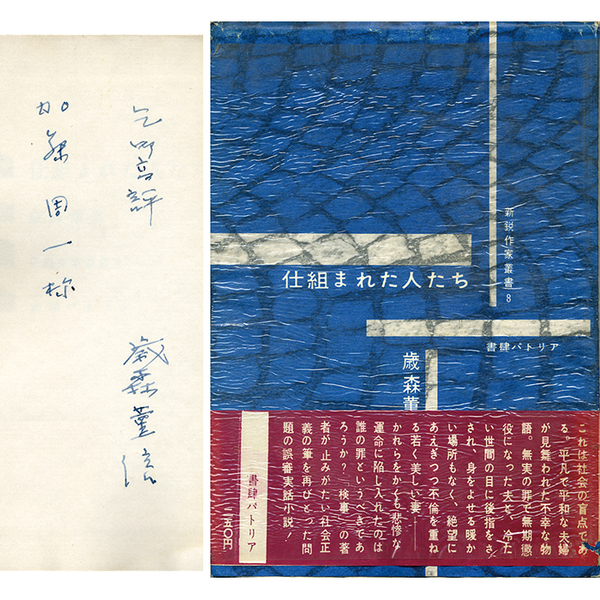 乞御高評
歳森薫信
加藤周一様
新鋭作家叢書 8
仕組まれた人たち
書肆パトリア
歳森薫
これは社会の盲点であ
る。平凡で平和な夫婦
が見舞われた不幸な物
語。無実の罪で無期懲
役になった夫と、冷た
い世間の目に後指をさ
され、身をよせる暖か
い場所もなく、絶望に
あえぎつつ不倫を重ね
る若く美しい妻…
かれらをかくも悲惨な
運命に陥し入れたのは
誰の罪というべきであ
ろうか?「検事」の著
者が止みがたい社会正
義の筆を再びとった問
題の誤審実話小説!
書肆パトリア
二五〇円